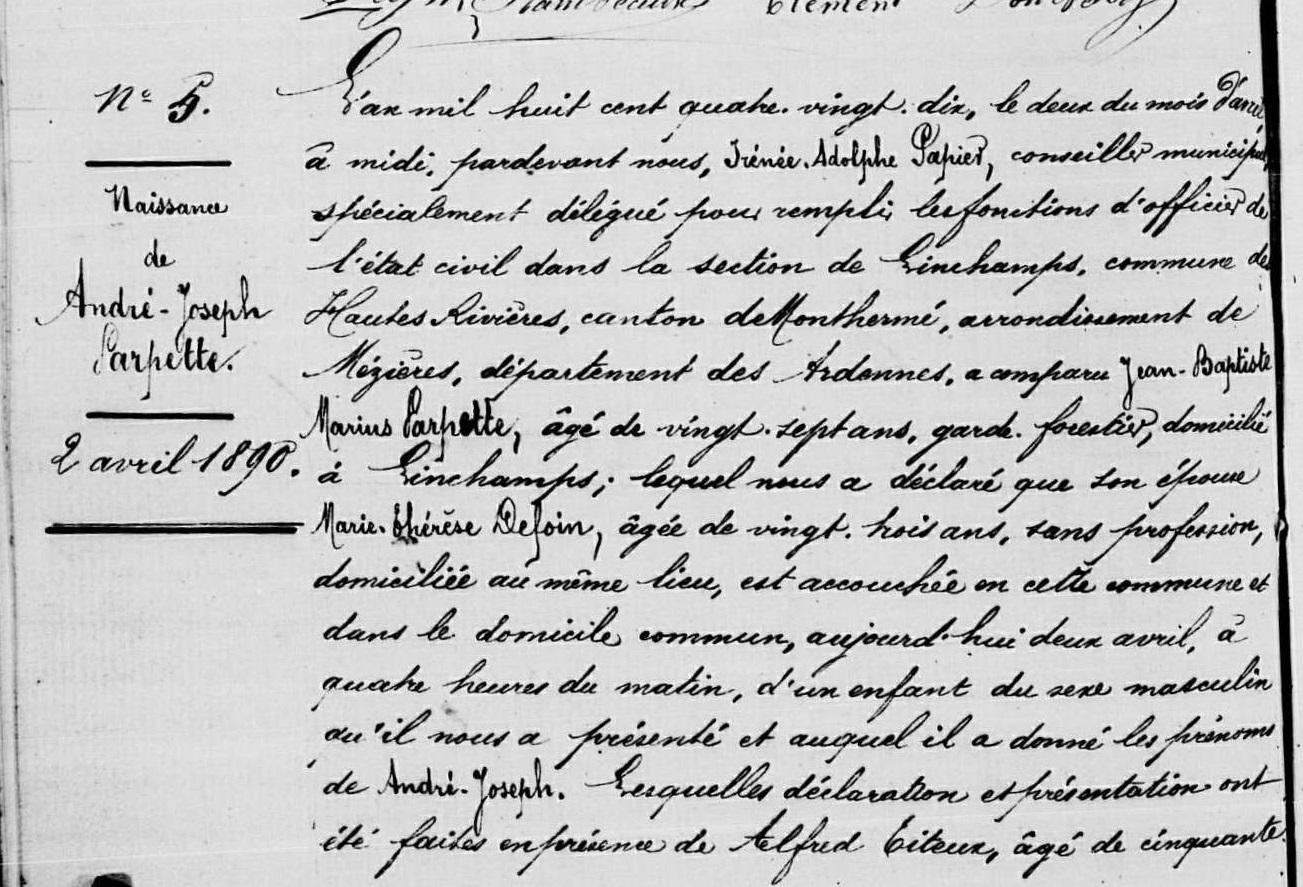 Clément
Nº 5.
Naissance
de
André-Joseph
Parpette.
2 avril 1890.
L'an mil huit cent quatre-vingt-dix, le deux du mois d'avril
à midi, pardevant nous, Irénée-Adolphe Papier, conseiller municipal
spécialement délégué pour remplir les fonctions d'officier de
l'état civil dans la section de Linchamps, commune des
Hautes Rivières, canton de Monthermé, arrondissement de
Mézières, département des Ardennes, a comparu Jean-Baptiste
Marius Parpette, âgé de vingt-sept ans, garde-forestier, domicilié
à Linchamps; lequel nous a déclaré que son épouse
Marie-Thérèse Defoin, âgée de vingt-trois ans, sans profession,
domiciliée au même lieu, est accouchée en cette commune et
dans le domicile commun, aujourd'hui deux avril, à
quatre heures du matin, d'un enfant du sexe masculin
qu'il nous a présenté et auquel il a donné les prénoms
de André-Joseph. Lesquelles déclaration et présentation ont
été faites en présence de Alfred Titeux, âgé de cinquante